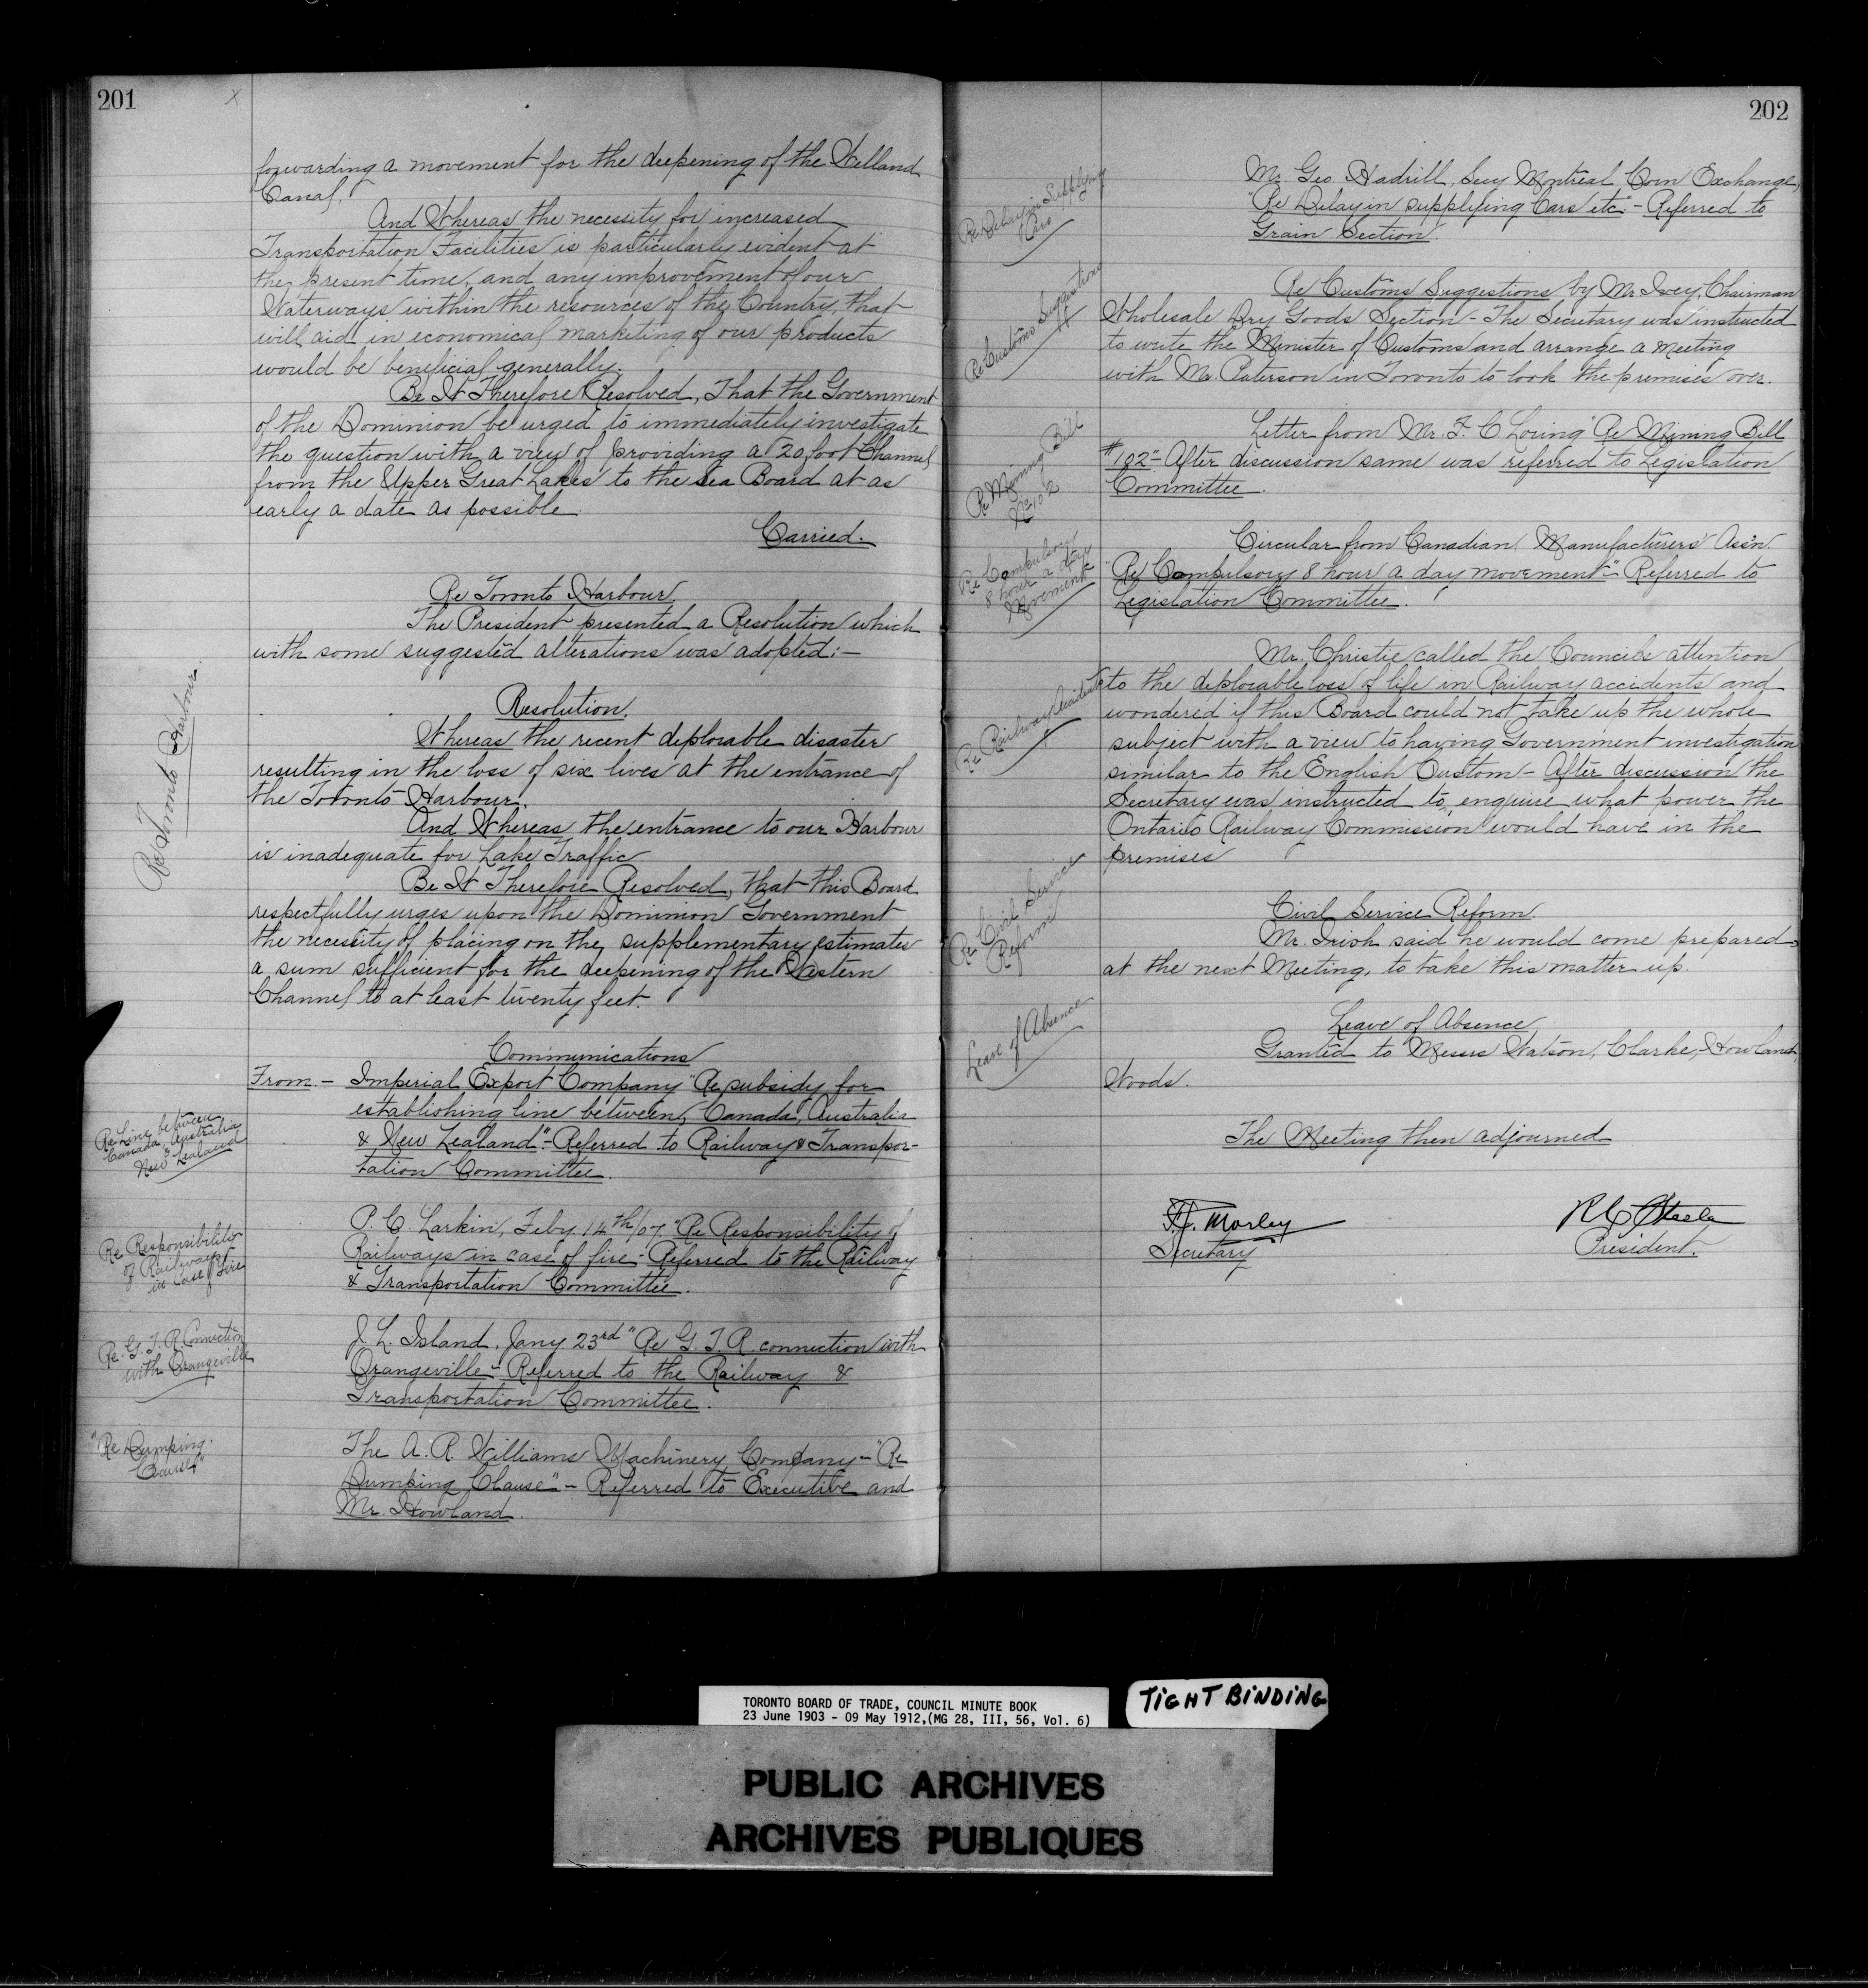 201
X
forwarding a movement for the deepening of the Welland
Canal.
And Whereas the necessity for increased
Transportation Facilities is particularly evident at
the present time, and any improvement of our
Waterways within the resources of the Country, that
will aid in economical marketing of our products
would be beneficial generally.
Be It Therefore Resolved, That the Government
of the Dominion be urged to immediately investigate
the question with a view of providing a 20 foot Channel
from the Upper Great Lakes to the Sea Board at as
early a date as possible.
Carried.
Re Toronto Harbour
Re Toronto Harbour.
The President presented a Resolution which
with some suggested alterations was adopted:—
Resolution.
Whereas the recent deplorable disaster
resulting in the loss of six lives at the entrance of
the Toronto Harbour.
And Whereas the entrance to our Harbour
is inadequate for Lake Traffic
Be It Therefore Resolved, that this Board
respectfully urges upon the Dominion Government
the necessity of placing on the supplementary estimates
a sum sufficient for the deepening of the Western
Channel to at least twenty feet.
Communications
Re Line between
Canada, Australia
& New Zealand
From.— Imperial Export Company "Re subsidy for
establishing line between, Canada, Australia
& New Zealand"- Referred to Railway & Transpor-
tation Committee.
Re Responsibility
of Railways
in case of fire
P. C. Larkin, Feby. 14th/07 "Re Responsibility of
Railways in case of fire- Referred to the Railway
& Transportation Committee.
Re. G. T. R. Connection
with Orangeville
J. L. Island, Jany 23rd "Re G. T. R. connection with
Orangeville- Referred to the Railway &
Transportation Committee.
"Re Dumping
Clause"
The A. R. Williams Machinery Company- "Re
Dumping Clause"- Referred to Executive and
Mr. Howland.
202
Re Delay in Supplying
Cars
Mr. Geo. Hadrill, Secy Montreal Corn Exchange,
"Re Delay in supplying Cars etc"- Referred to
Grain Section.
Re Customs Suggestions
Re Customs Suggestions by Mr Ivey, Chairman
Wholesale Dry Goods Section- The Secretary was instructed
to write the Minister of Customs and arrange a meeting
with Mr. Paterson in Toronto to look the premises over.
Re Mining Bill
No 102
Letter from Mr. F. C Loring "Re Mining Bill
#102"- After discussion same was referred to Legislation
Committee.
Re Compulsory
8 hour a day
Movement
Circular from Canadian Manufacturers' Ass'n.
"Re Compulsory 8 hour a day movement"- Referred to
Legislation Committee.
Re Railway Accidents
Mr. Christie called the Council's attention
to the deplorable loss of life in Railway accidents and
wondered if this Board could not take up the whole
subject with a view to having Government investigation
similar to the English Custom- After discussion the
Secretary was instructed to enquire what power the
Ontario Railway Commission would have in the
premises
Re Civil Service
Reform
Civil Service Reform.
Mr. Irish said he would come prepared,
at the next Meeting, to take this matter up.
Leave of Absence
Leave of Absence
Granted to Messrs Watson, Clarke, Howland,
Woods.
The Meeting then adjourned
F.G. Morley
Secretary
R C Steele
President.
TORONTO BOARD OF TRADE, COUNCIL MINUTE BOOK
23 June 1903 - 09 May 1912,(MG 28, III, 56, Vol. 6)
TIGHT BINDING
PUBLIC ARCHIVES
ARCHIVES PUBLIQUES